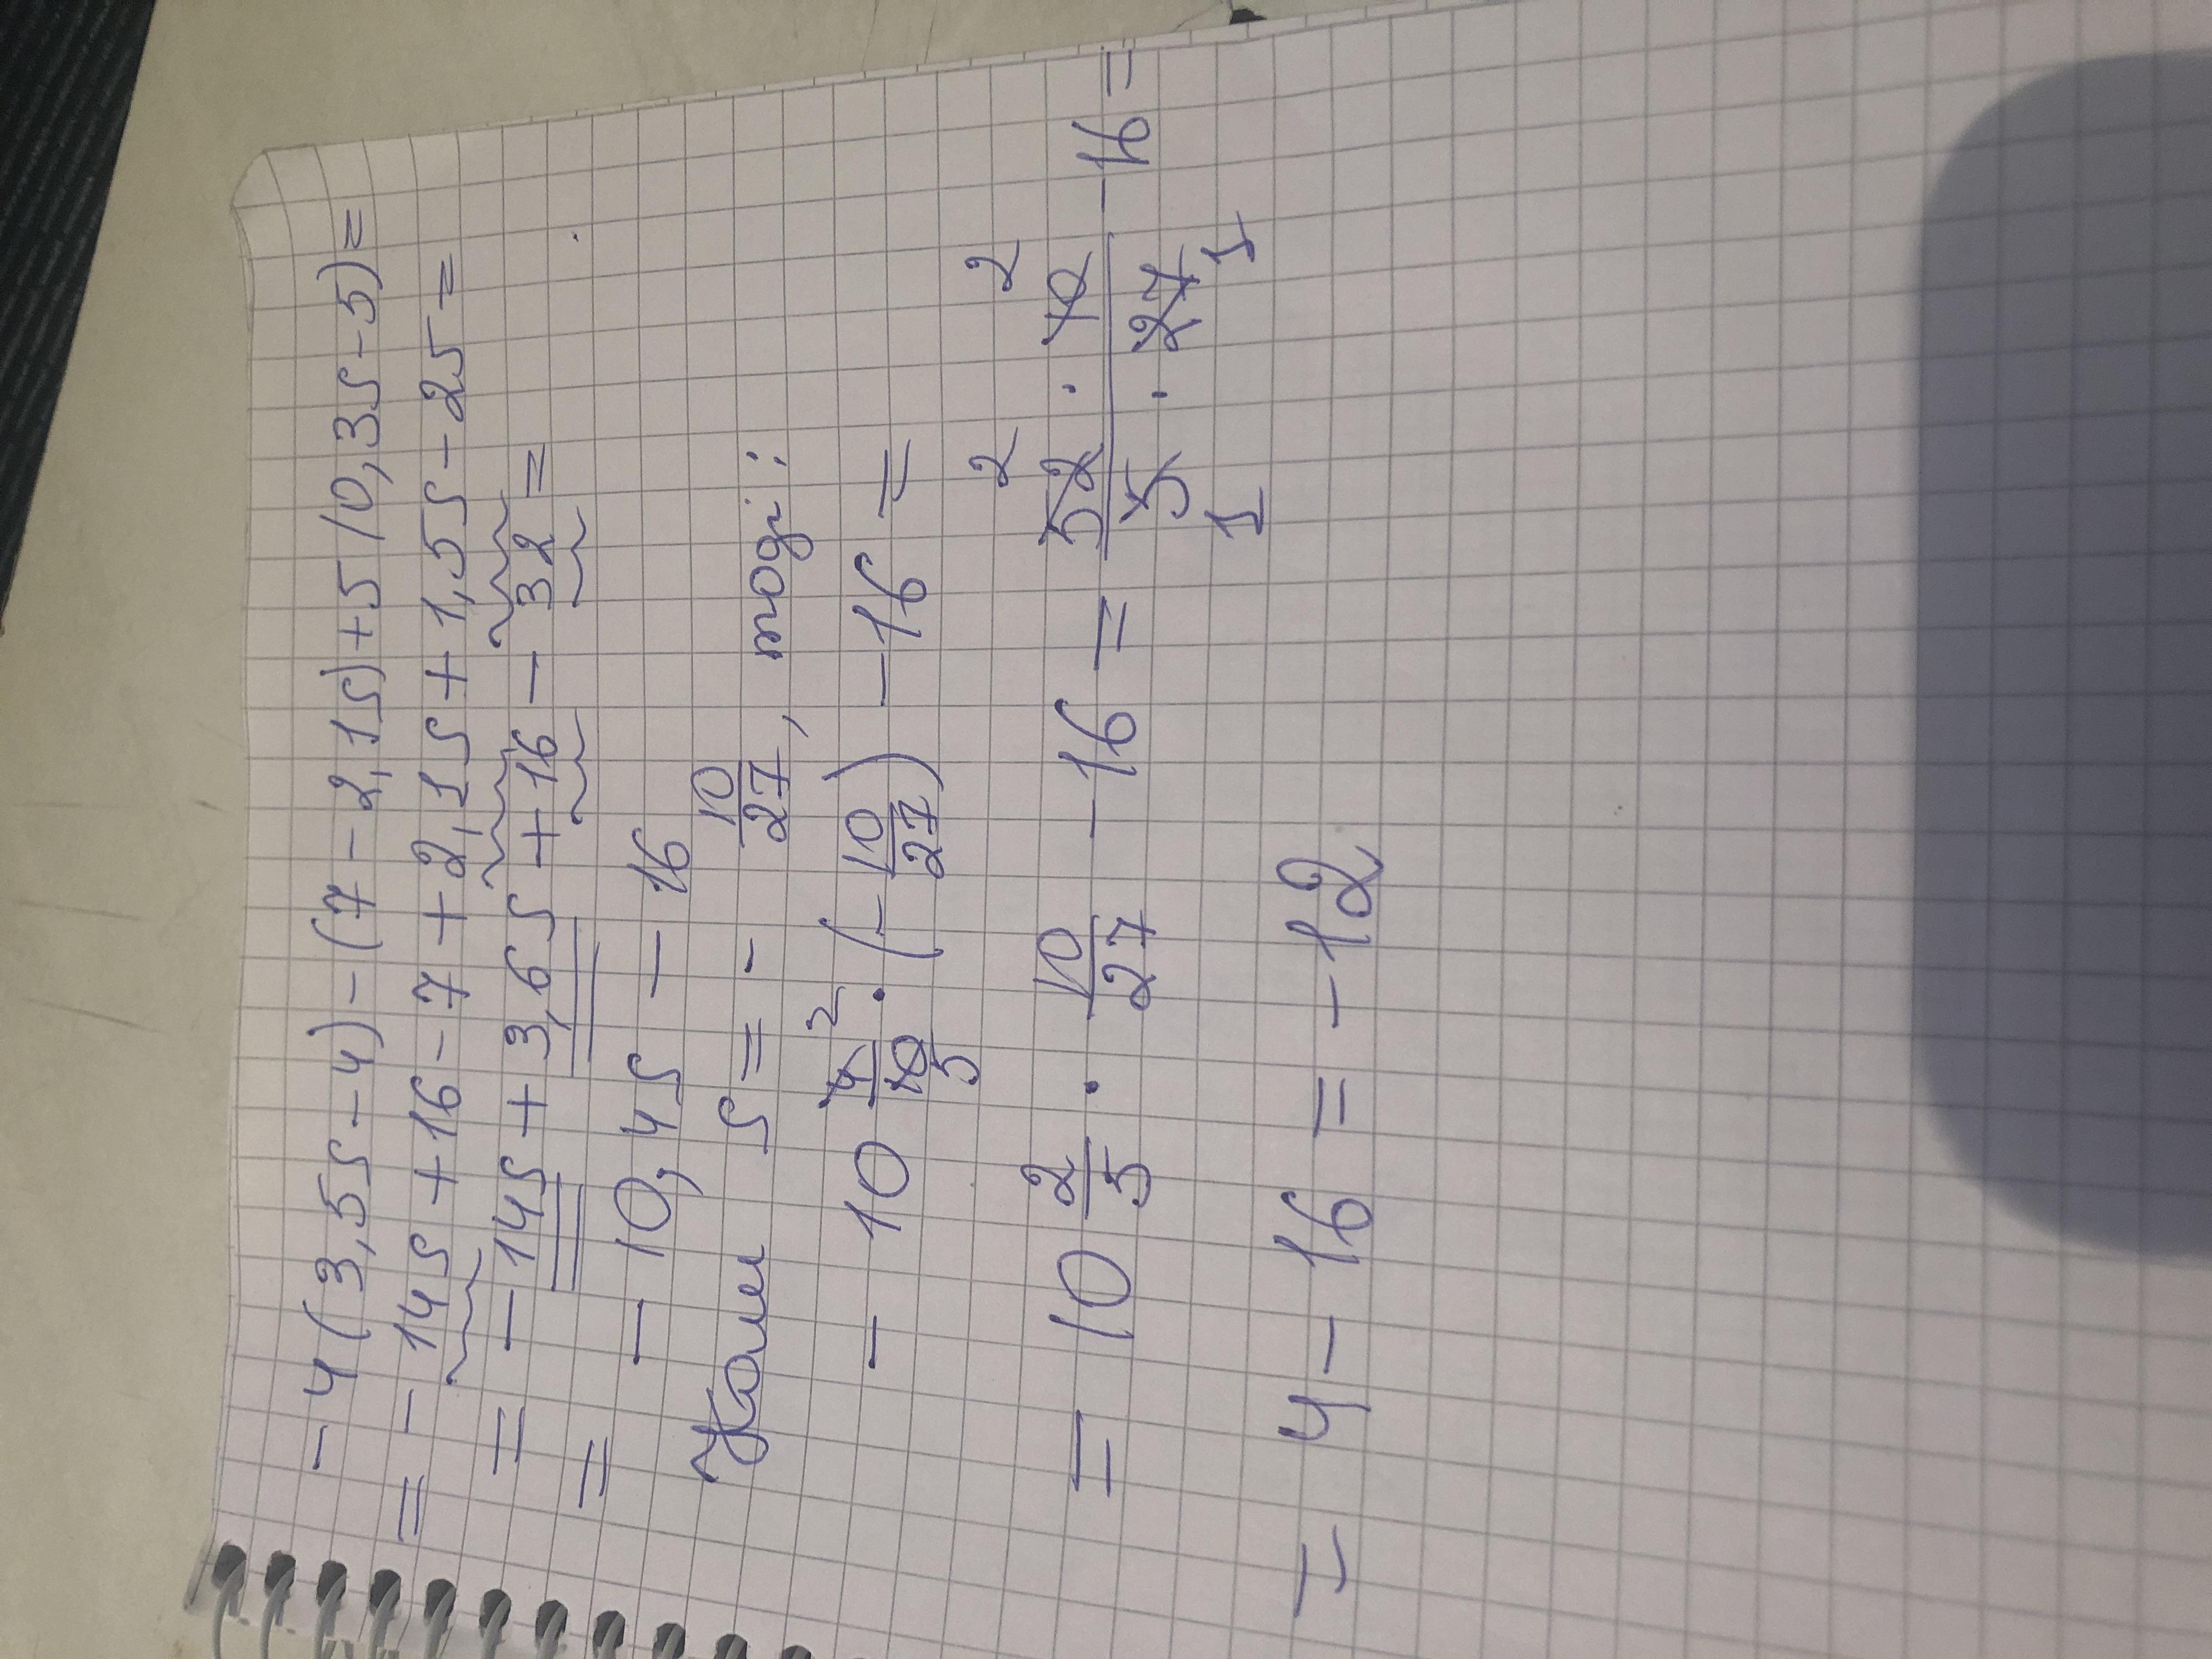 -4(3,5s-4)-(7-2,1s)+5(0,3s-5)=
= -14s+16-7+2,1s+1,5s-25=
= -14s+3,6s+16-32=
= -10,4s-16
Коли s=-10/27, тоді:
-10 4/10 2/5 · (-10/27) -16=
= 10 2/5 · 10/27 -16 = 52 2 · 10 2 / 5 1 · 27 1 -16=
= 4-16=-12